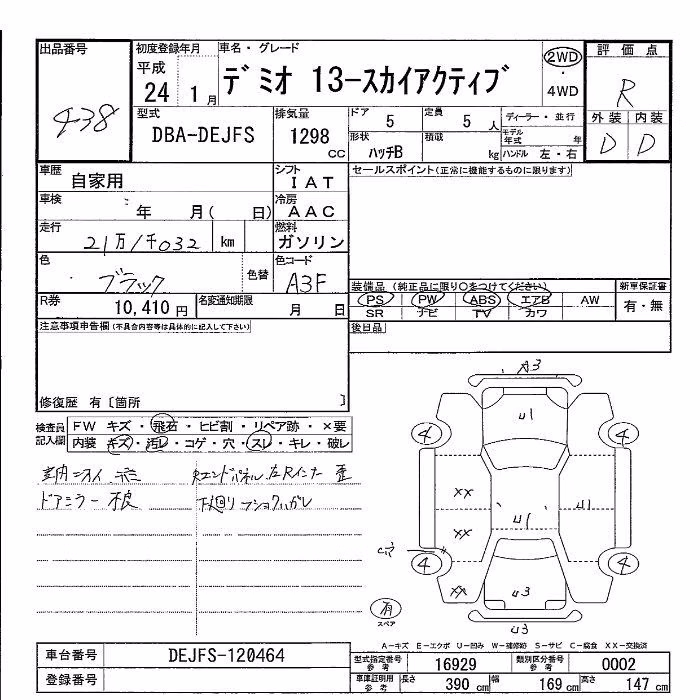 出品番号 初度登録年月 車名・グレード 評価点
438 平成 24 1月 デミオ 13-スカイアクティブ 2WD・4WD R
型式 排気量 ドア 定員 ディーラー・並行 外装 内装
DBA-DEJFS 1298 CC 5 5人 モデル年式 年 D D
形状 積載
ハッチB kg ハンドル 左・右
車歴 自家用 シフト IAT セールスポイント(正常に機能するものに限ります)
車検 年 月( 日) 冷房 AAC
走行 21万1千032 km 燃料 ガソリン
色 ブラック 色替 色コード A3F
装備品 (純正品に限り○をつけてください) 新車保証書
PS PW ABS エアB AW 有・無
SR ナビ TV カワ
R券 10,410円 名変通知期限 月 日
注意事項申告欄(不具合内容等は具体的に記入して下さい) 後日品
修復歴 有〔箇所 〕
検査員記入欄 FW キズ・飛石・ヒビ割・リペア跡・×要
内装 キズ・汚レ・コゲ・穴・スレ・キレ・破レ
Rエンドパネル 左Rインナー 歪
ドアミラー 不良
下廻り
A3
U1
4 4
XX U1 U1
XX
4 4
XX U3
有
スペア
U3
A-キズ E-エクボ U-凹み W-補修跡 S-サビ C-腐食 XX-交換済
車台番号 DEJFS-120464 型式指定番号参考 16929 類別区分番号参考 0002
登録番号 車庫証明用参考 長さ 390 cm 幅 169 cm 高さ 147 cm